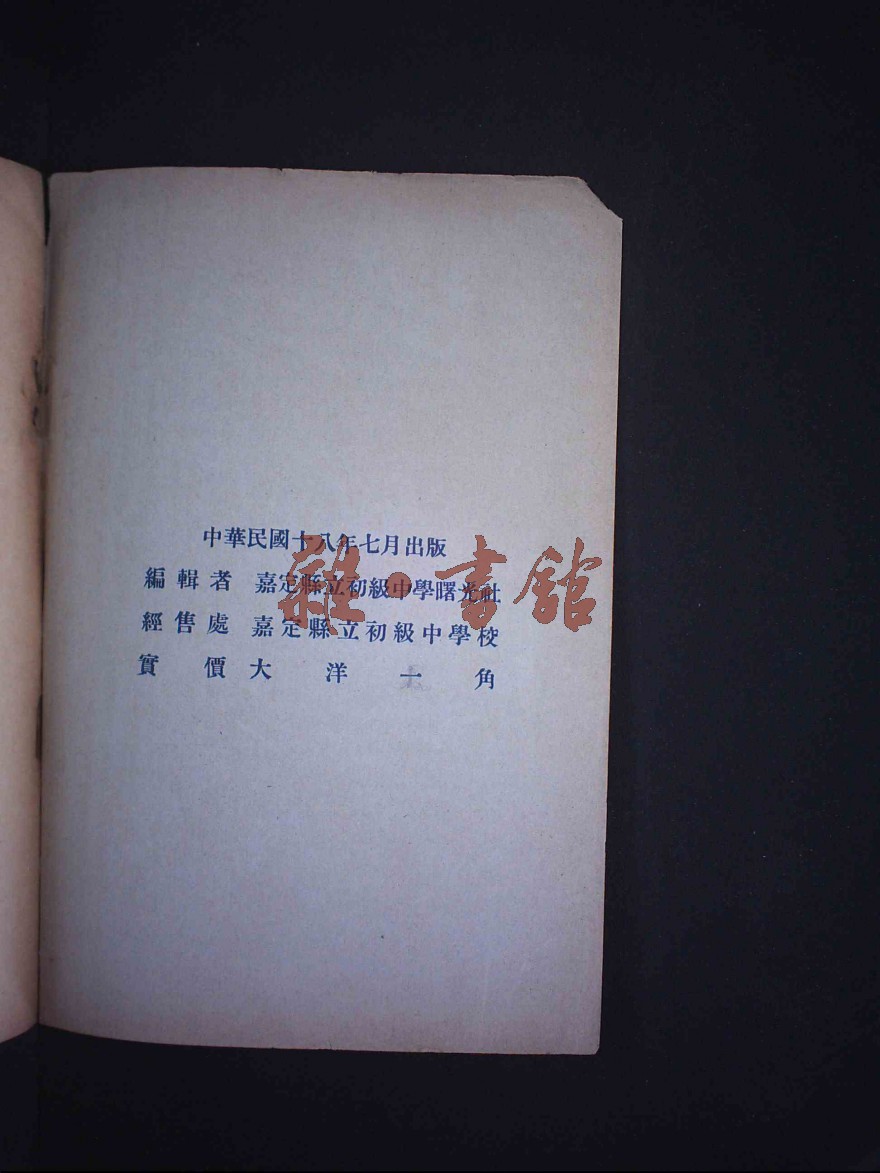 中華民國十八年七月出版
編輯者 嘉定縣立初級中學曙光社
經售處 嘉定縣立初級中學校
實價大洋一角
雜·書館